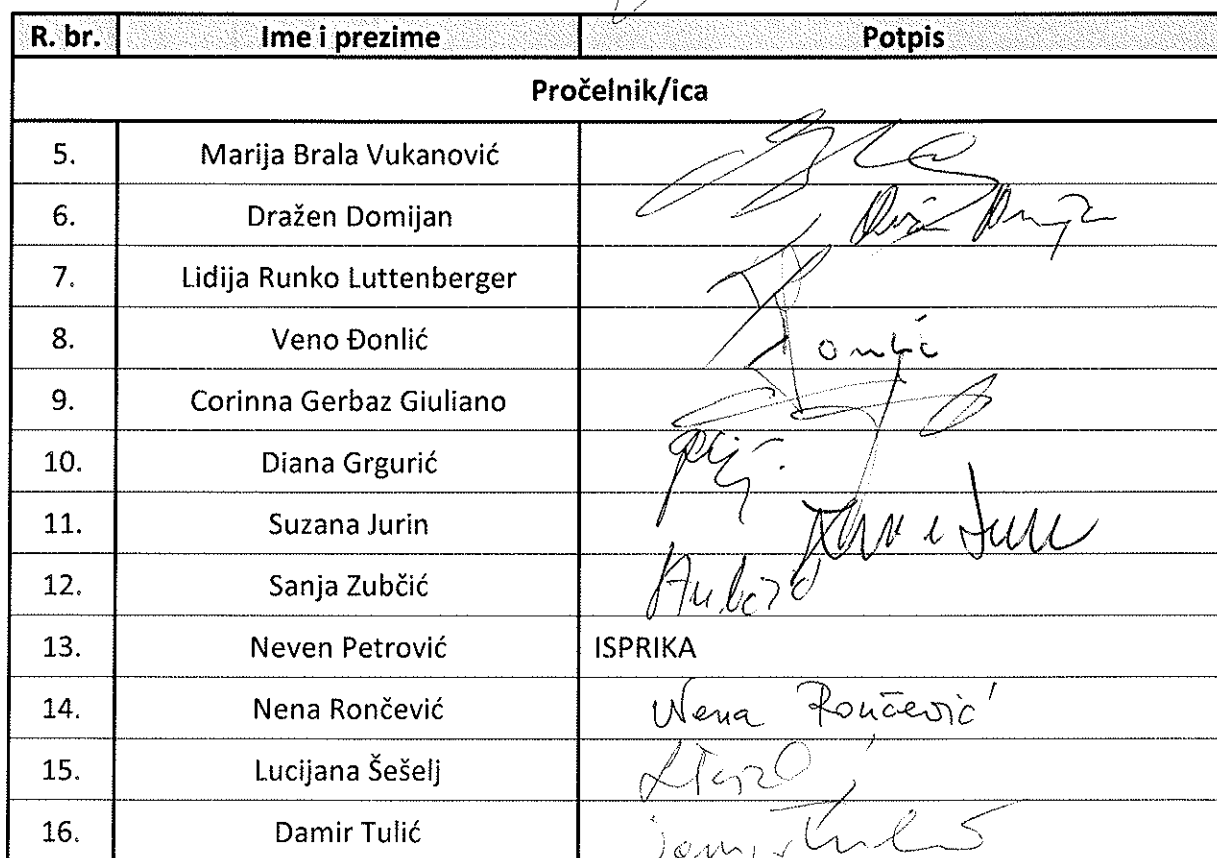 R. br. Ime i prezime Potpis
Pročelnik/ica
5. Marija Brala Vukanović
6. Dražen Domijan
7. Lidija Runko Luttenberger
8. Veno Đonlić
9. Corinna Gerbaz Giuliano
10. Diana Grgurić
11. Suzana Jurin
12. Sanja Zubčić
13. Neven Petrović ISPRIKA
14. Nena Rončević Nena Rončević
15. Lucijana Šešelj
16. Damir Tulić